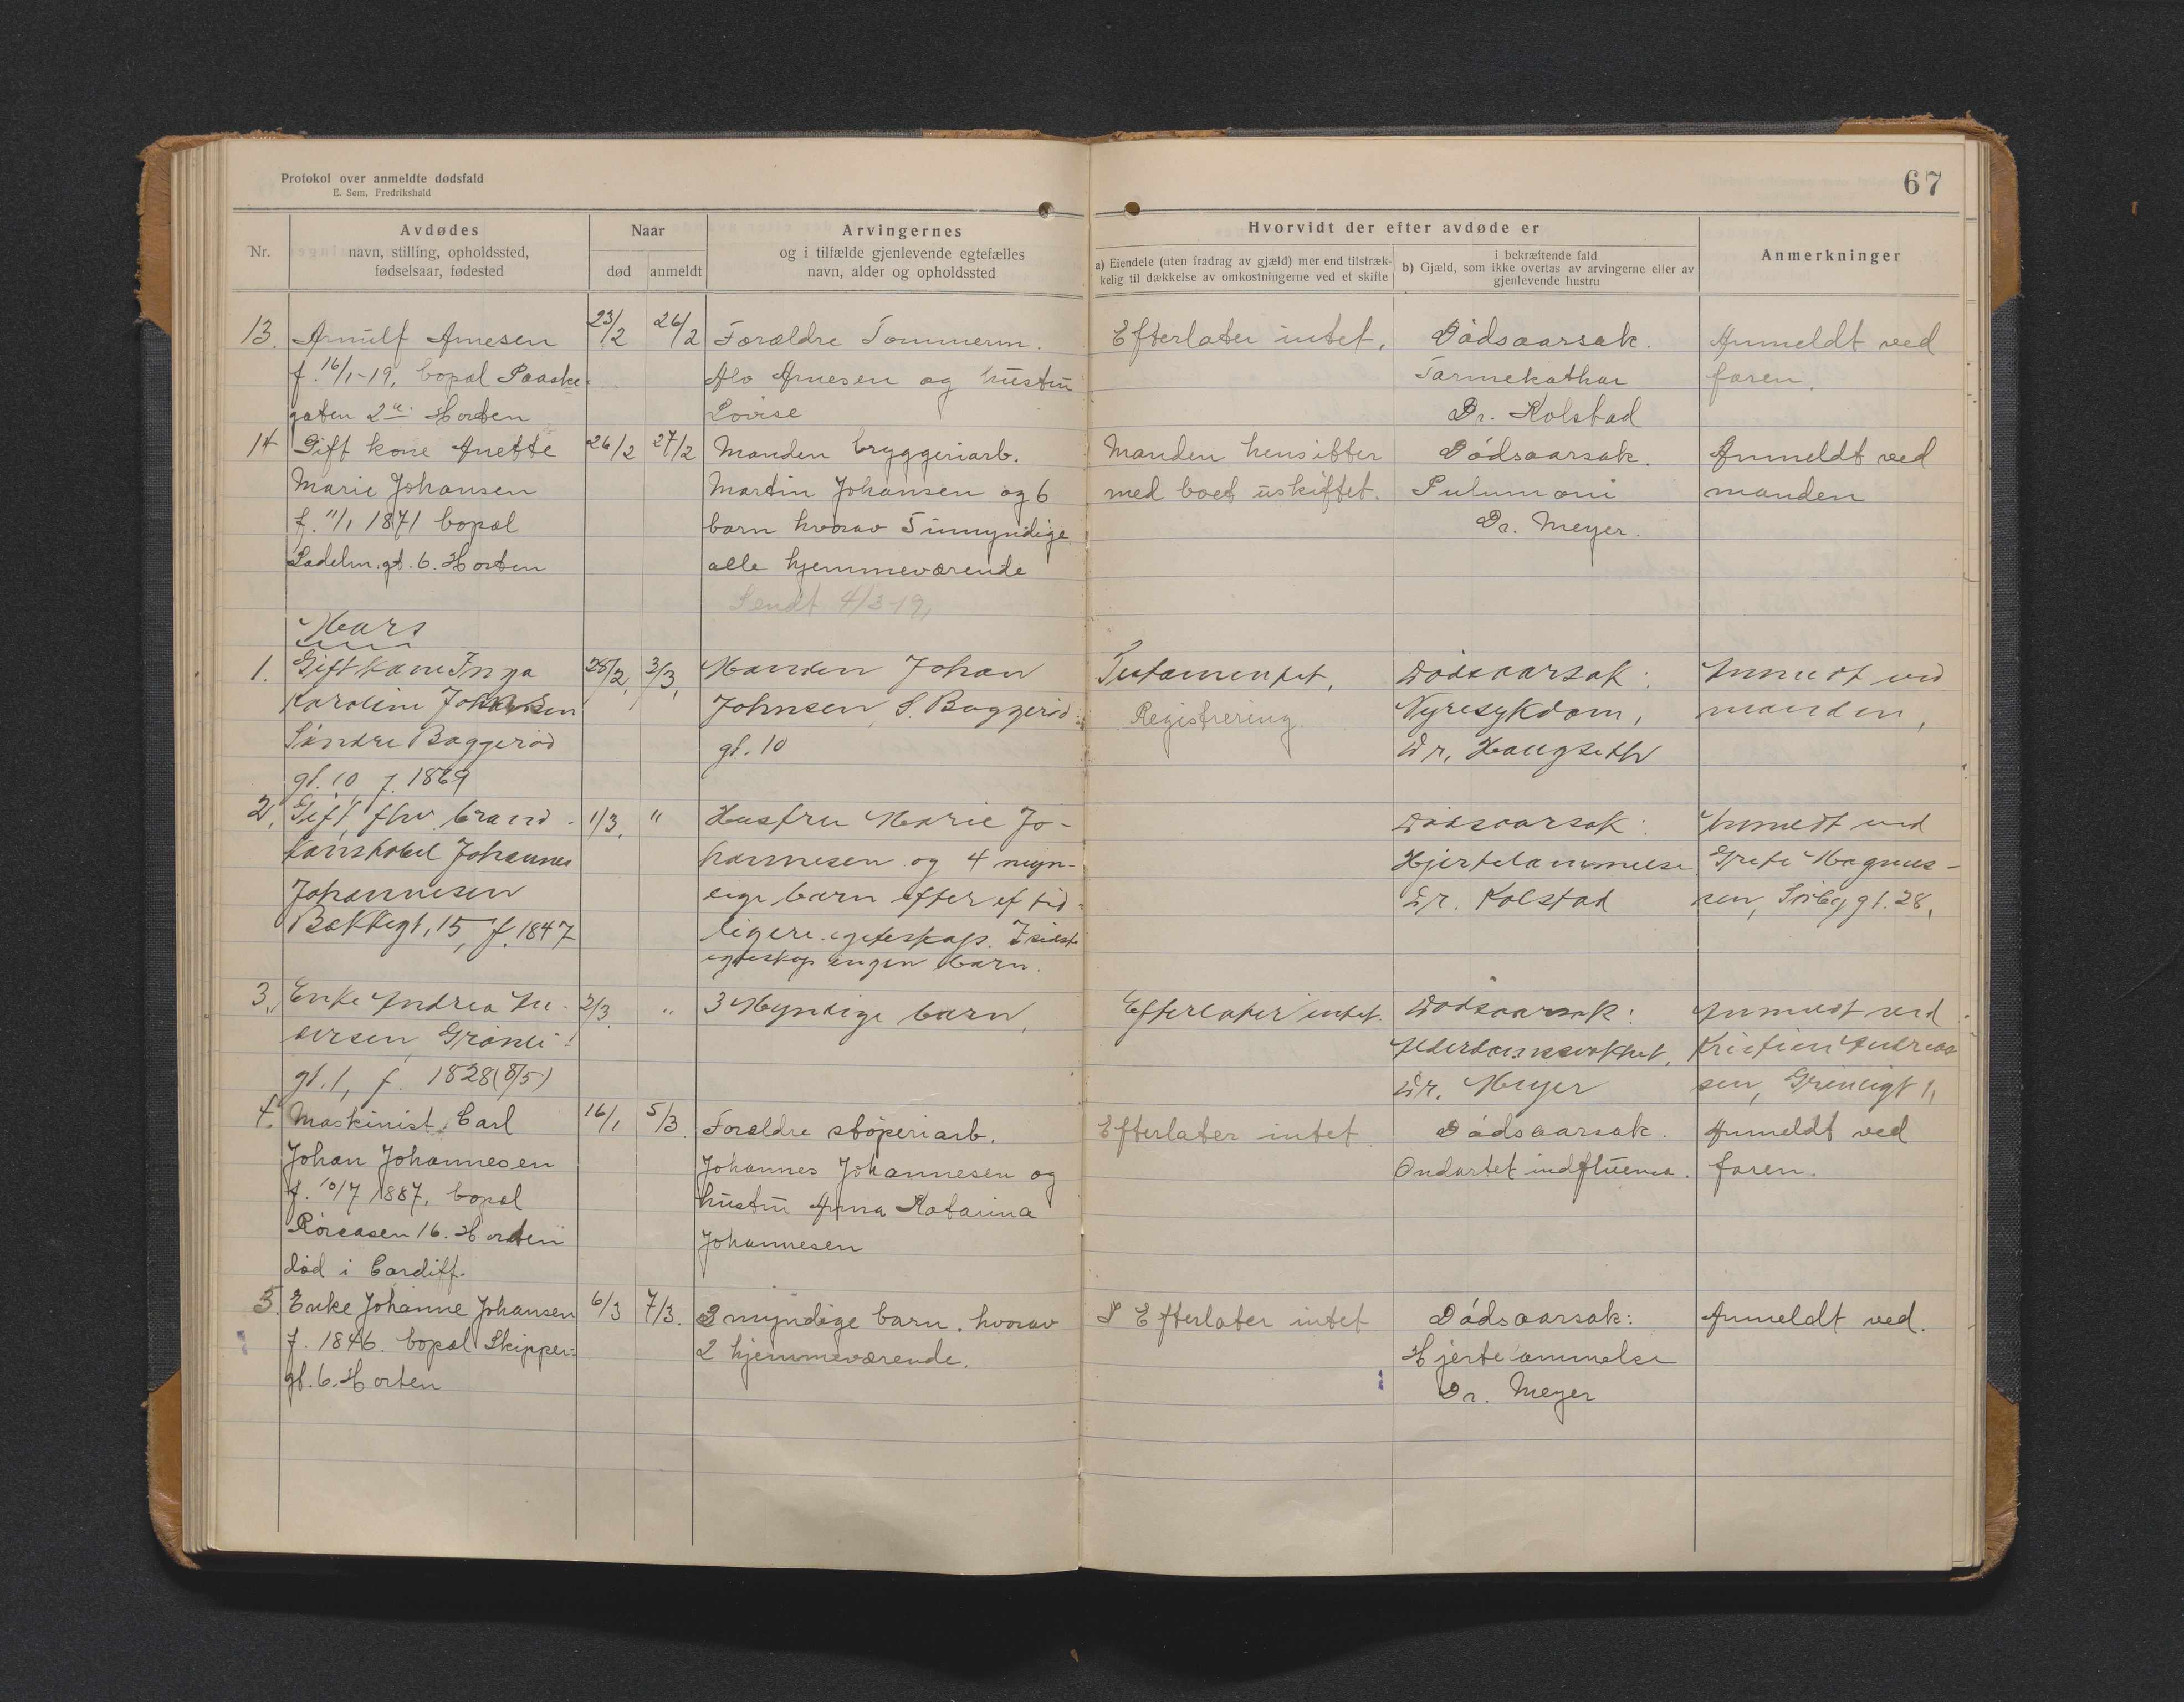 Protokol over anmeldte dødsfald
E. Sem, Fredrikshald
67
Nr.
Avdødes
navn, stilling, opholdssted,
fødselsaar, fødested
Naar
død
anmeldt
Arvingernes
og i tilfælde gjenlevende egtefælles
navn, alder og opholdssted
Hvorvidt der efter avdøde er
a) Eiendele (uten fradrag av gjæld) mer end tilstræk-
kelig til dækkelse av omkostningerne ved et skifte
i bekræftende fald
b) Gjæld, som ikke overtas av arvingerne eller av
gjenlevende hustru
Anmerkninger
13. Arnulf Arnesen 23/2 26/2 Forældre Tømmerm. Efterlater intet. Dødsaarsak. Anmeldt ved
f. 16/1-19, bopæl Paaske- Alo Arnesen og hustru Tarmekathar faren.
gaten 2 a. Horten Lovise Dr. Kolstad
14 Gift kone Anette 26/2 27/2 Manden bryggeriarb. Manden hensitter Dødsaarsak. Anmeldt ved
Marie Johansen Martin Johansen og 6 med boet uskiftet. Pulumoni manden
f. 11/1 1871 bopæl barn hvorav 5 umyndige Dr. Meyer.
Ladelm.gt. 6. Horten alle hjemmeværende
Sendt 4/3-19,
Mars
1. Gift kone Inga 28/2, 3/3, Manden Johan Testamentet, Dødsaarsak: Anmeldt ved
Karoline Johnsen Johnsen, S. Baggerød- Registrering. Nyresykdom, manden,
Søndre Baggerød gt. 10 Dr. Haugseth
gt. 10, f. 1869
2, Gift, fhv. brand- 1/3, " Hustru Marie Jo- Dødsaarsak: Anmeldt ved
konstabel Johannes hannesen og 4 myn- Hjertelammelse Grete Magnus-
Johannesen dige barn efter et tid- Dr. Kolstad sen, gt. 28,
Bekkegt. 15, f. 1847 ligere egteskap. I sidste
egteskap ingen barn.
3, Enke Andrea An- 2/3. " 3 Myndige barn, Efterlater intet. Dødsaarsak: Anmeldt ved
dersen, Grønli- Alderdomssvakhet, Kristian Andreas-
gt. 1, f. 1828 (8/5) Dr. Meyer sen, Grønligt 1,
4. Maskinist, Carl 16/1 5/3. Forældre støperiarb. Efterlater intet. Dødsaarsak. Anmeldt ved
Johan Johannesen Johannes Johannesen og Ondartet indfluensa. faren.
f. 10/7 1887, bopæl hustru Anna Katarina
Røreasen 16. Horten Johannesen
død i Cardiff.
5. Enke Johanne Johansen 6/3 7/3. 3 myndige barn. hvorav Efterlater intet Dødsaarsak: Anmeldt ved.
f. 1846. bopæl Skipper- 2 hjemmeværende. Hjertelammelse
gt. 6. Horten Dr. Meyer